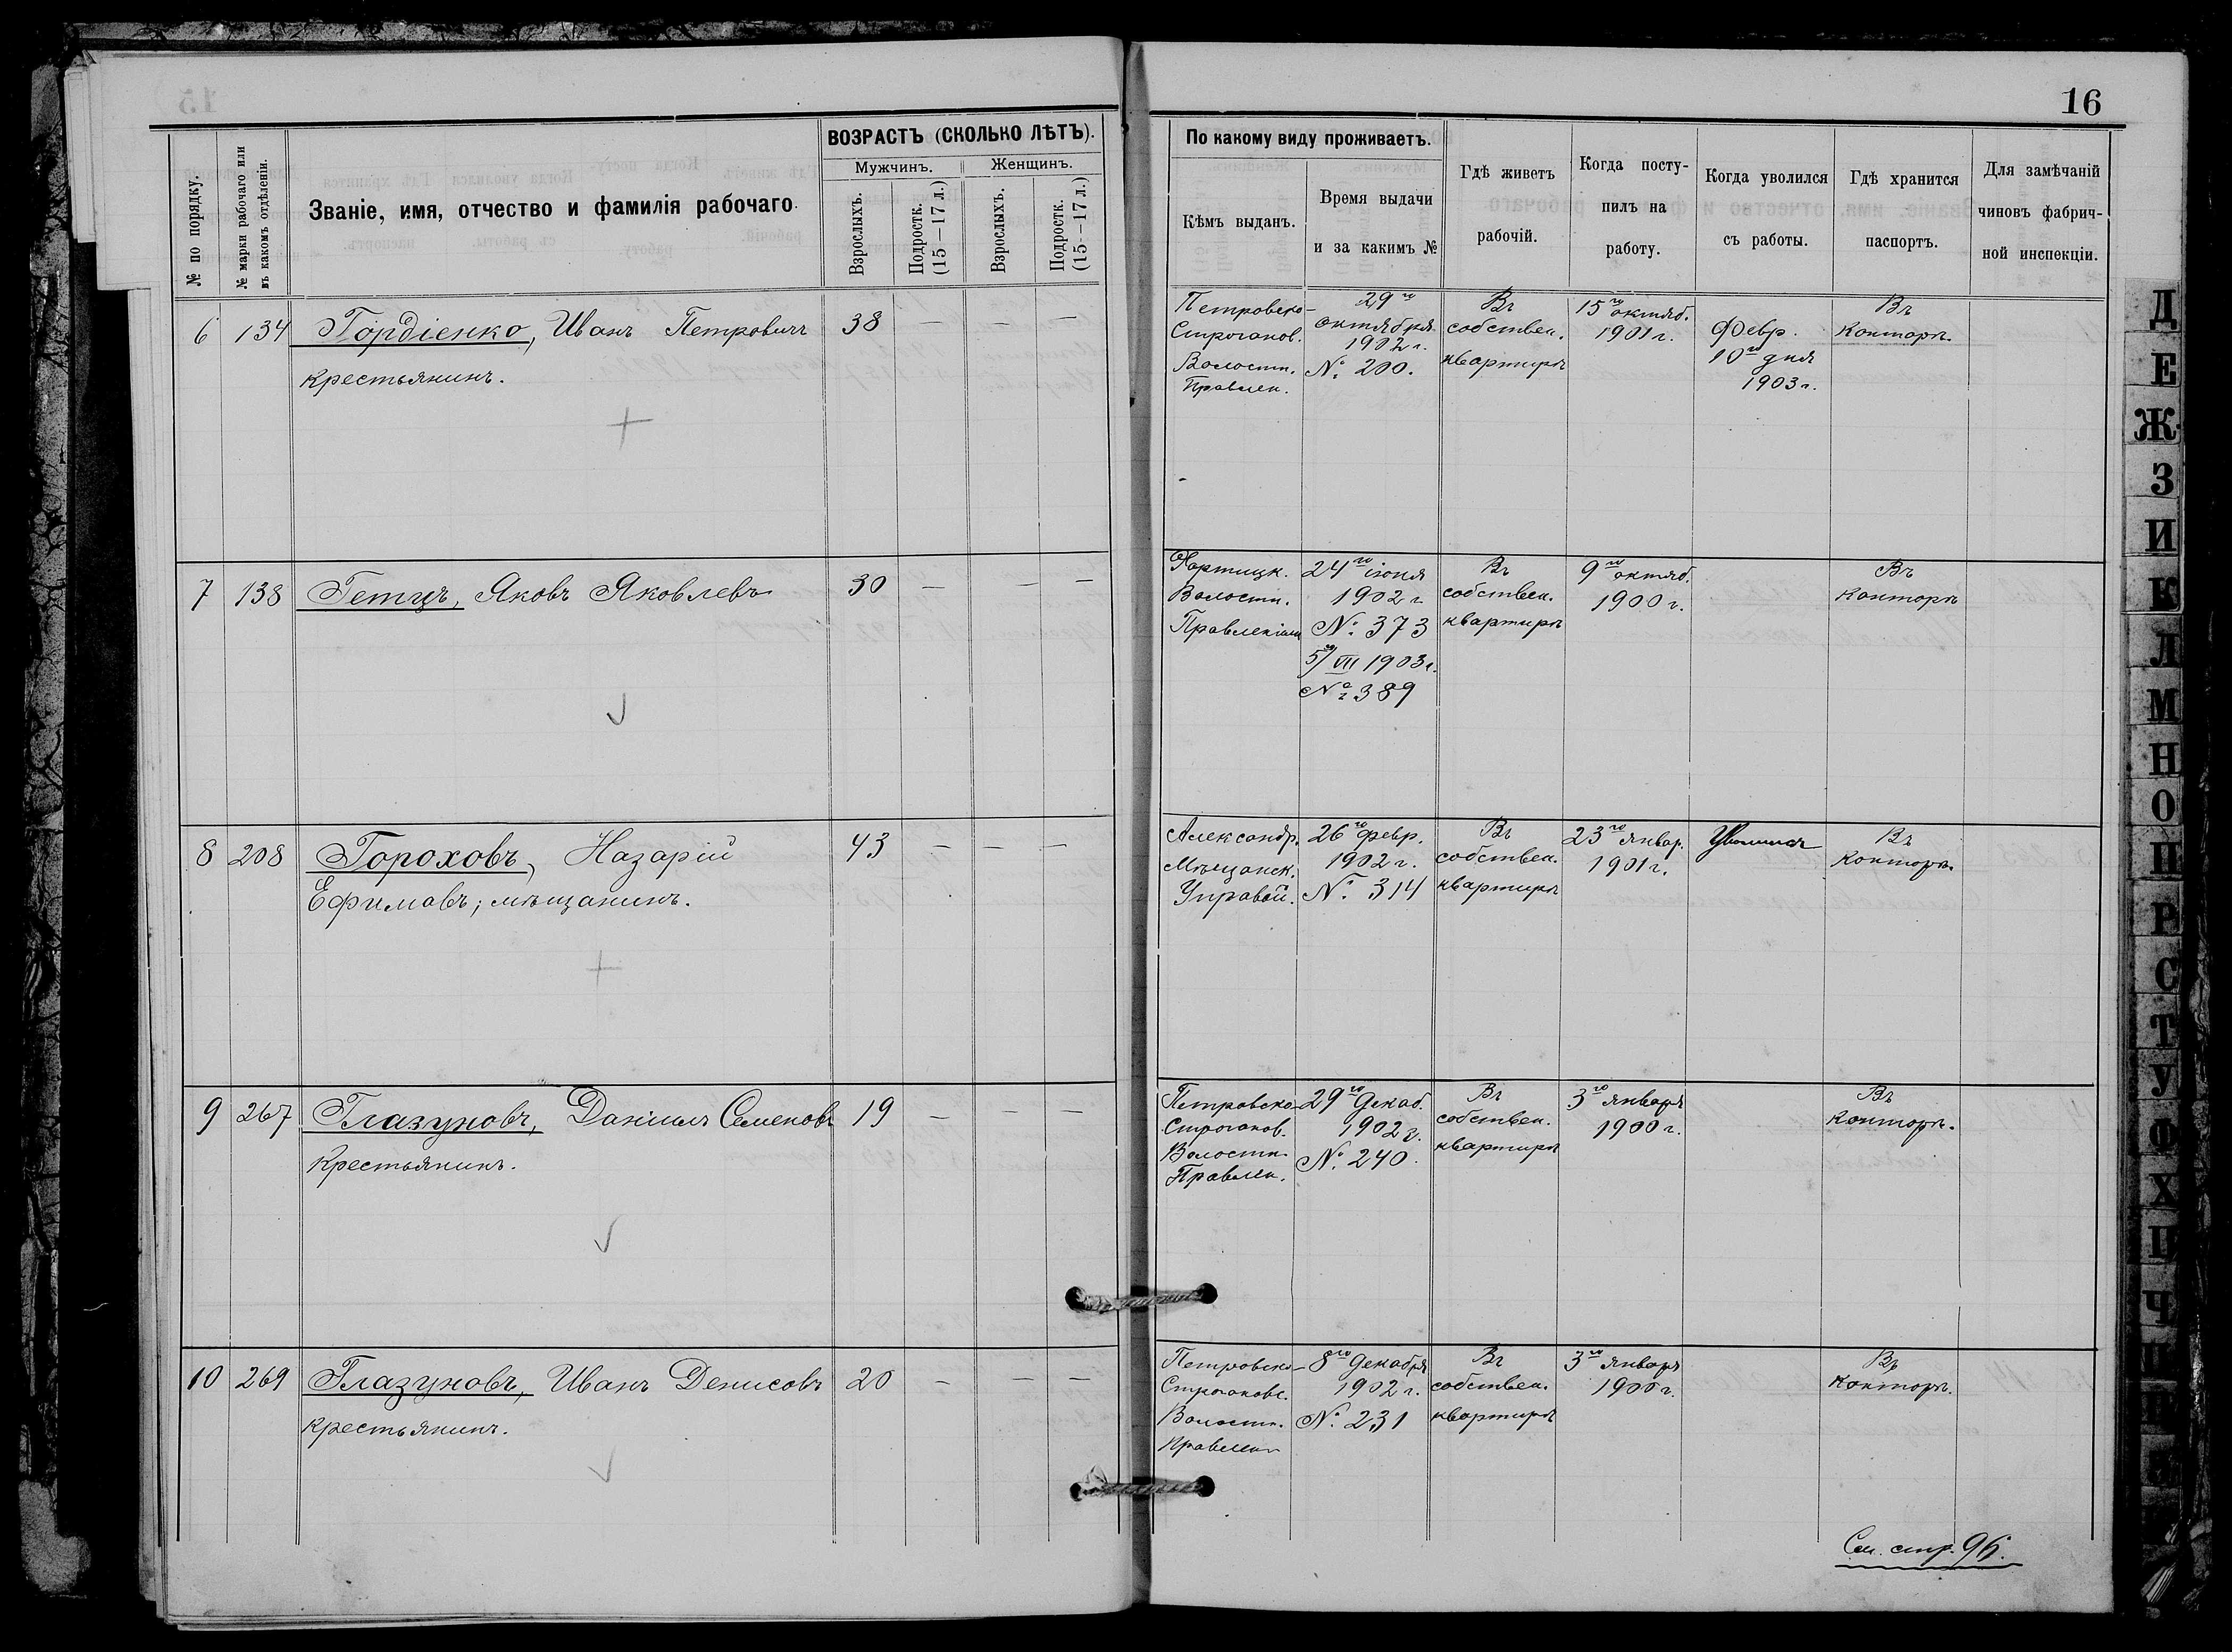 16
№ по порядку.
№ марки рабочаго или
въ какомъ отдѣленіи.
Званіе, имя, отчество и фамилія рабочаго.
ВОЗРАСТЪ (СКОЛЬКО ЛѢТЪ).
Мужчинъ.
Женщинъ.
Взрослыхъ.
Подростк.
(15—17 л.)
Взрослыхъ.
Подростк.
(15—17 л.)
По какому виду проживаетъ.
Кѣмъ выданъ.
Время выдачи
и за какимъ №
Гдѣ живетъ
рабочій.
Когда посту-
пилъ на
работу.
Когда уволился
съ работы.
Гдѣ хранится
паспортъ.
Для замѣчаній
чиновъ фабрич-
ной инспекціи.
6 134 Гордіенко, Иванъ Петровичъ 38 — —
крестьянинъ.
Петровско-
Строганов.
Волостн.
Правлен.
29го
октября
1902 г.
№ 200.
Въ
собствен.
квартирѣ
15го октяб.
1901 г.
Февр.
10го дня
1903 г.
Въ
Конторѣ.
7 138 Гетцъ, Яковъ Яковлевъ 30 — — —
Хортицк.
Волостн.
Правленіем
24го іюня
1902 г.
№ 373
5го/VII 1903 г.
№ 389
Въ
собствен.
квартирѣ
9го октяб.
1900 г.
Въ
Конторѣ
8 208 Гороховъ, Назарій 43 — — —
Ефимовъ; мѣщанинъ.
Александр.
Мѣщанск.
Управой.
26го февр.
1902 г.
№ 314
Въ
собствен.
квартирѣ
23го январ.
1901 г.
Уволился
Въ
Конторѣ.
9 267 Глазуновъ, Даніилъ Семеновъ 19 — — —
Крестьянинъ.
Петровско-
Строганов.
Волостн.
Правлен.
29го Декаб.
1902 г.
№ 240.
Въ
собствен.
квартирѣ
3го января
1900 г.
Въ
Конторѣ.
10 269 Глазуновъ, Иванъ Денисовъ 20 — — —
крестьянинъ.
Петровско-
Строгановс.
Волостн.
Правлен
8го Декабря
1902 г.
№ 231
Въ
собствен.
квартирѣ
3го января
1900 г.
Въ
Конторѣ.
См. стр. 96.
Д
Е
Ж
З
И
К
Л
М
Н
О
П
Р
С
Т
У
Ф
Х
Ц
Ч